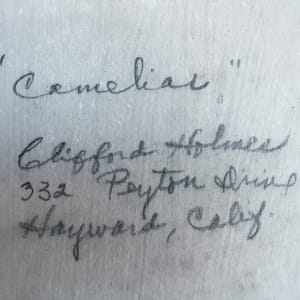 "Camelias"
Clifford Holmes
332 Peyton Drive
Hayward, Calif.